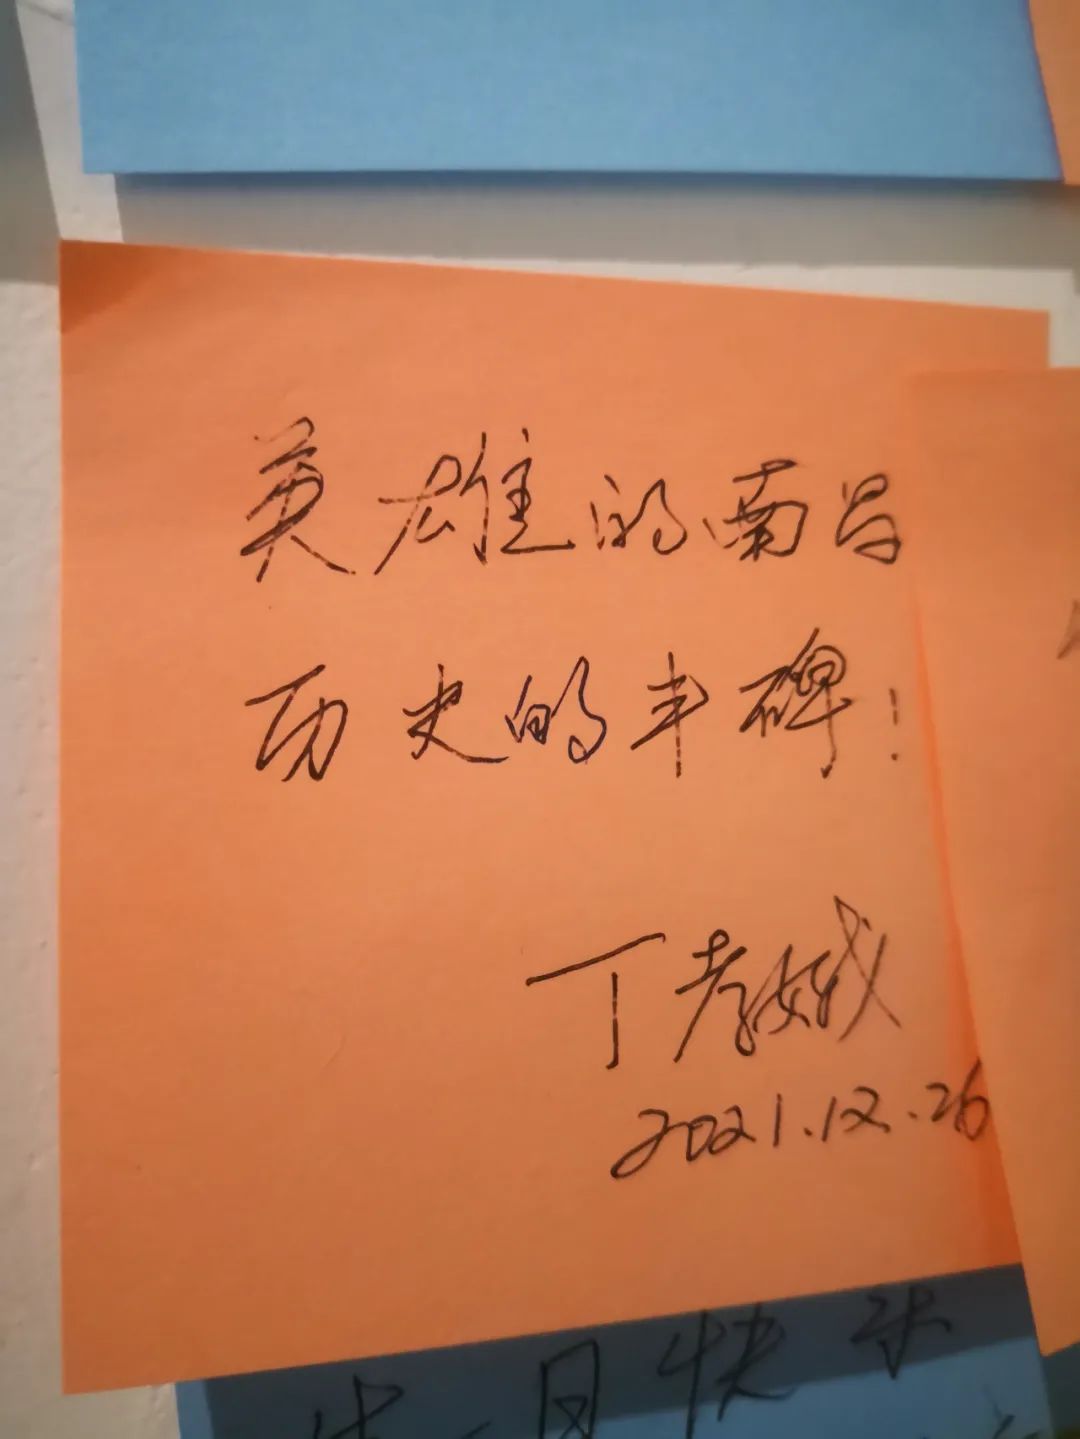 英雄的南昌
历史的丰碑！
丁孝娥
2021.12.26
快乐